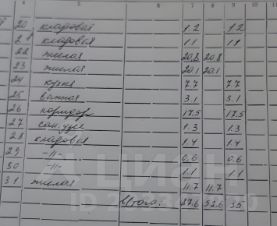 20 кладовая 1.2 1.2
21 кладовая 1.1 1.1
22 жилая 20,8 20,8
23 жилая 20.1 20.1
24 кухня 7.7 7.7
25 ванная 3.1 3.1
26 коридор 17.5 17.5
27 сан. узел 1.3 1.3
28 кладовая 1.4 1.4
29 -"- 0.6 0.6
30 -"- 1.1 1.1
31 жилая 11.7 11.7
Итого:
ЦИАН